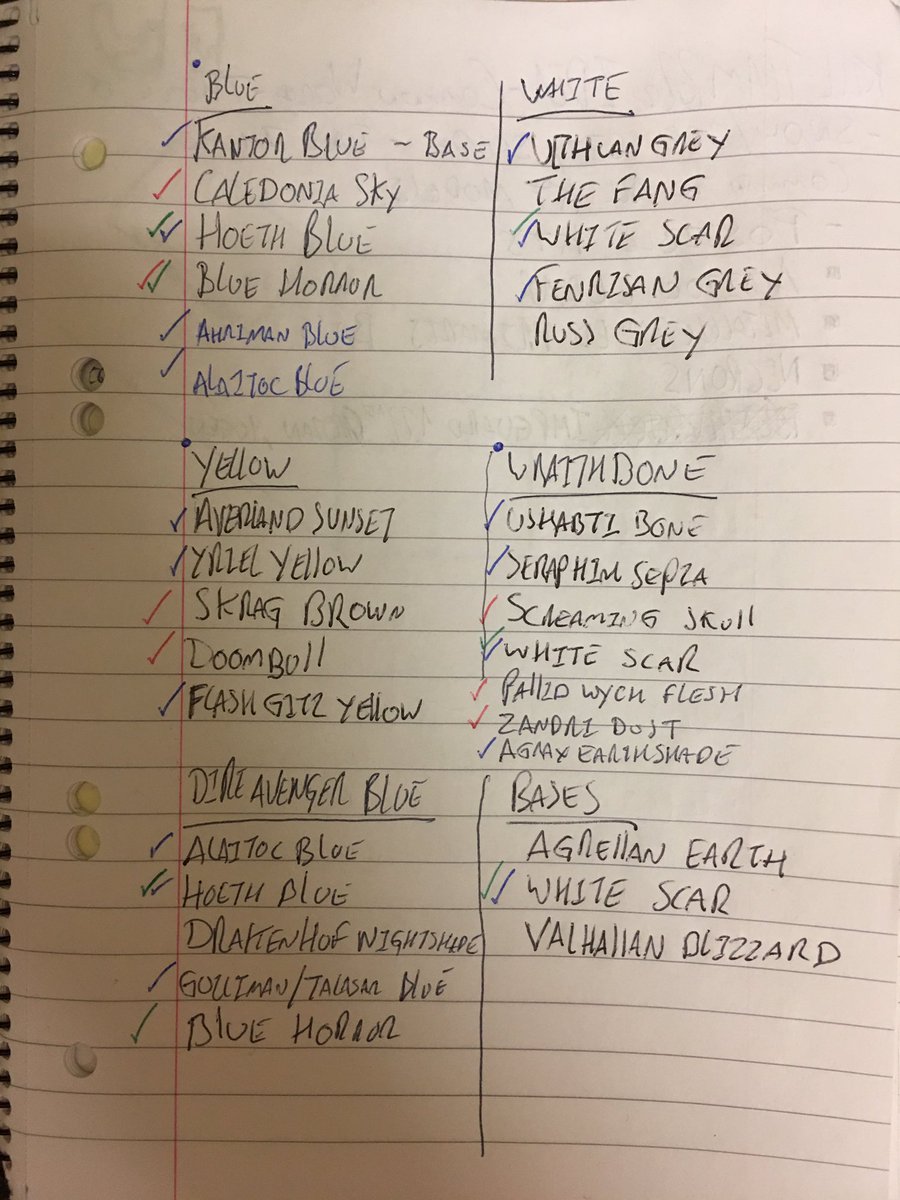 BLUE
KANTOR BLUE ~ BASE
CALEDONIA SKY
HOETH BLUE
BLUE HORROR
AHRIMAN BLUE
ALAITOC BLUE
WHITE
ULTHUAN GREY
THE FANG
WHITE SCAR
FENRISAN GREY
RUSS GREY
YELLOW
AVERLAND SUNSET
YRIEL YELLOW
SKRAG BROWN
DOOMBULL
FLASH GITZ YELLOW
WRAITHBONE
USHABTI BONE
SERAPHIM SEPIA
SCREAMING SKULL
WHITE SCAR
PALLID WYCH FLESH
ZANDRI DUST
AGRAX EARTHSHADE
DIRE AVENGER BLUE
ALAITOC BLUE
HOETH BLUE
DRAKENHOF NIGHTSHADE
GULLIMAN/TALASAR BLUE
BLUE HORROR
BASES
AGRELLAN EARTH
WHITE SCAR
VALHALLAN BLIZZARD